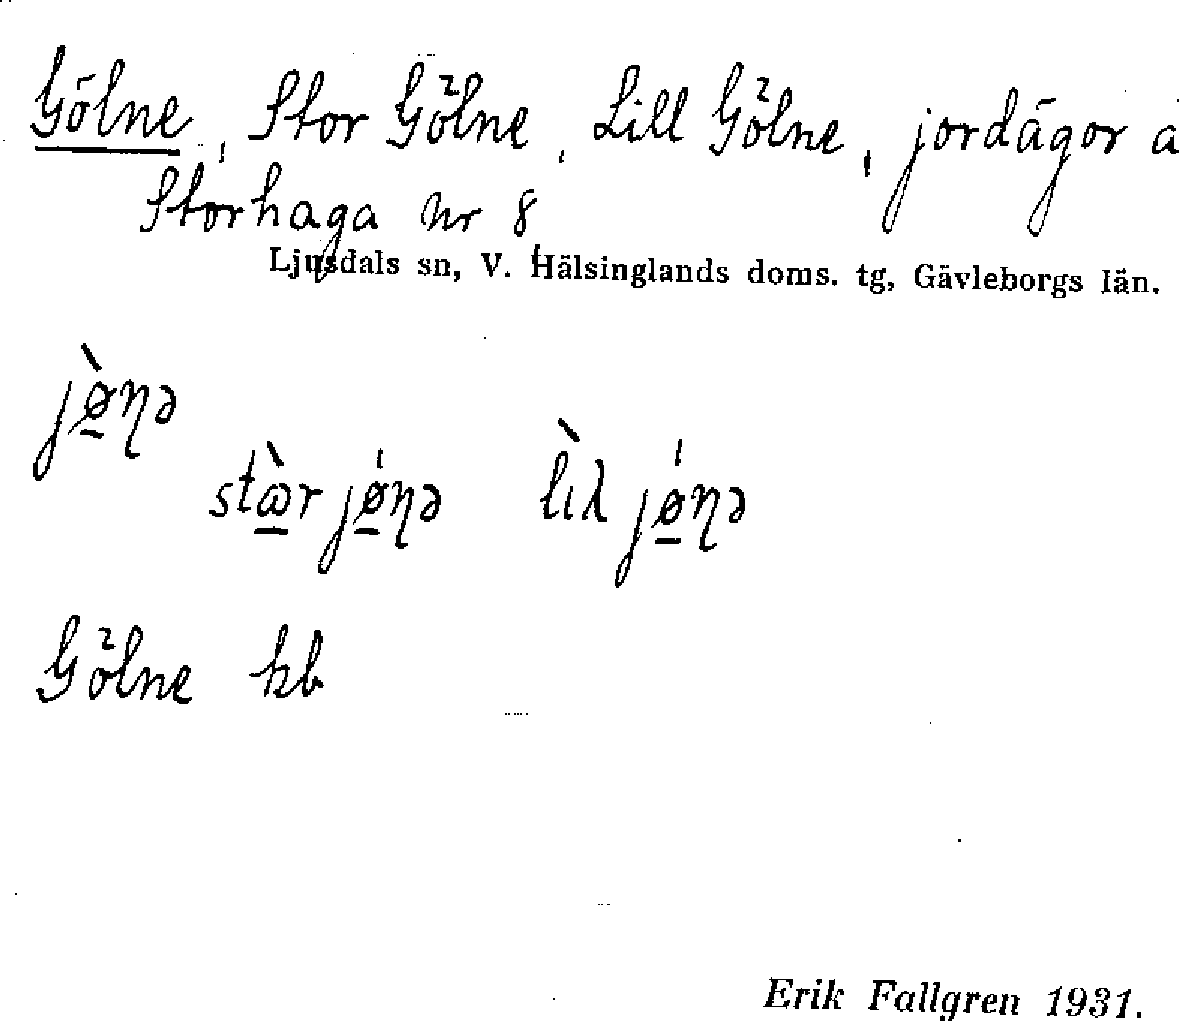 Gölne, Stor Gölne, Lill Gölne, jordägor å
Storhaga nr 8
Ljusdals sn, V. Hälsinglands doms. tg, Gävleborgs län.
jø̀ɳə
stɷ̀r jǿɳə lìλ jǿɳə
Gölne kb
Erik Fallgren 1931.